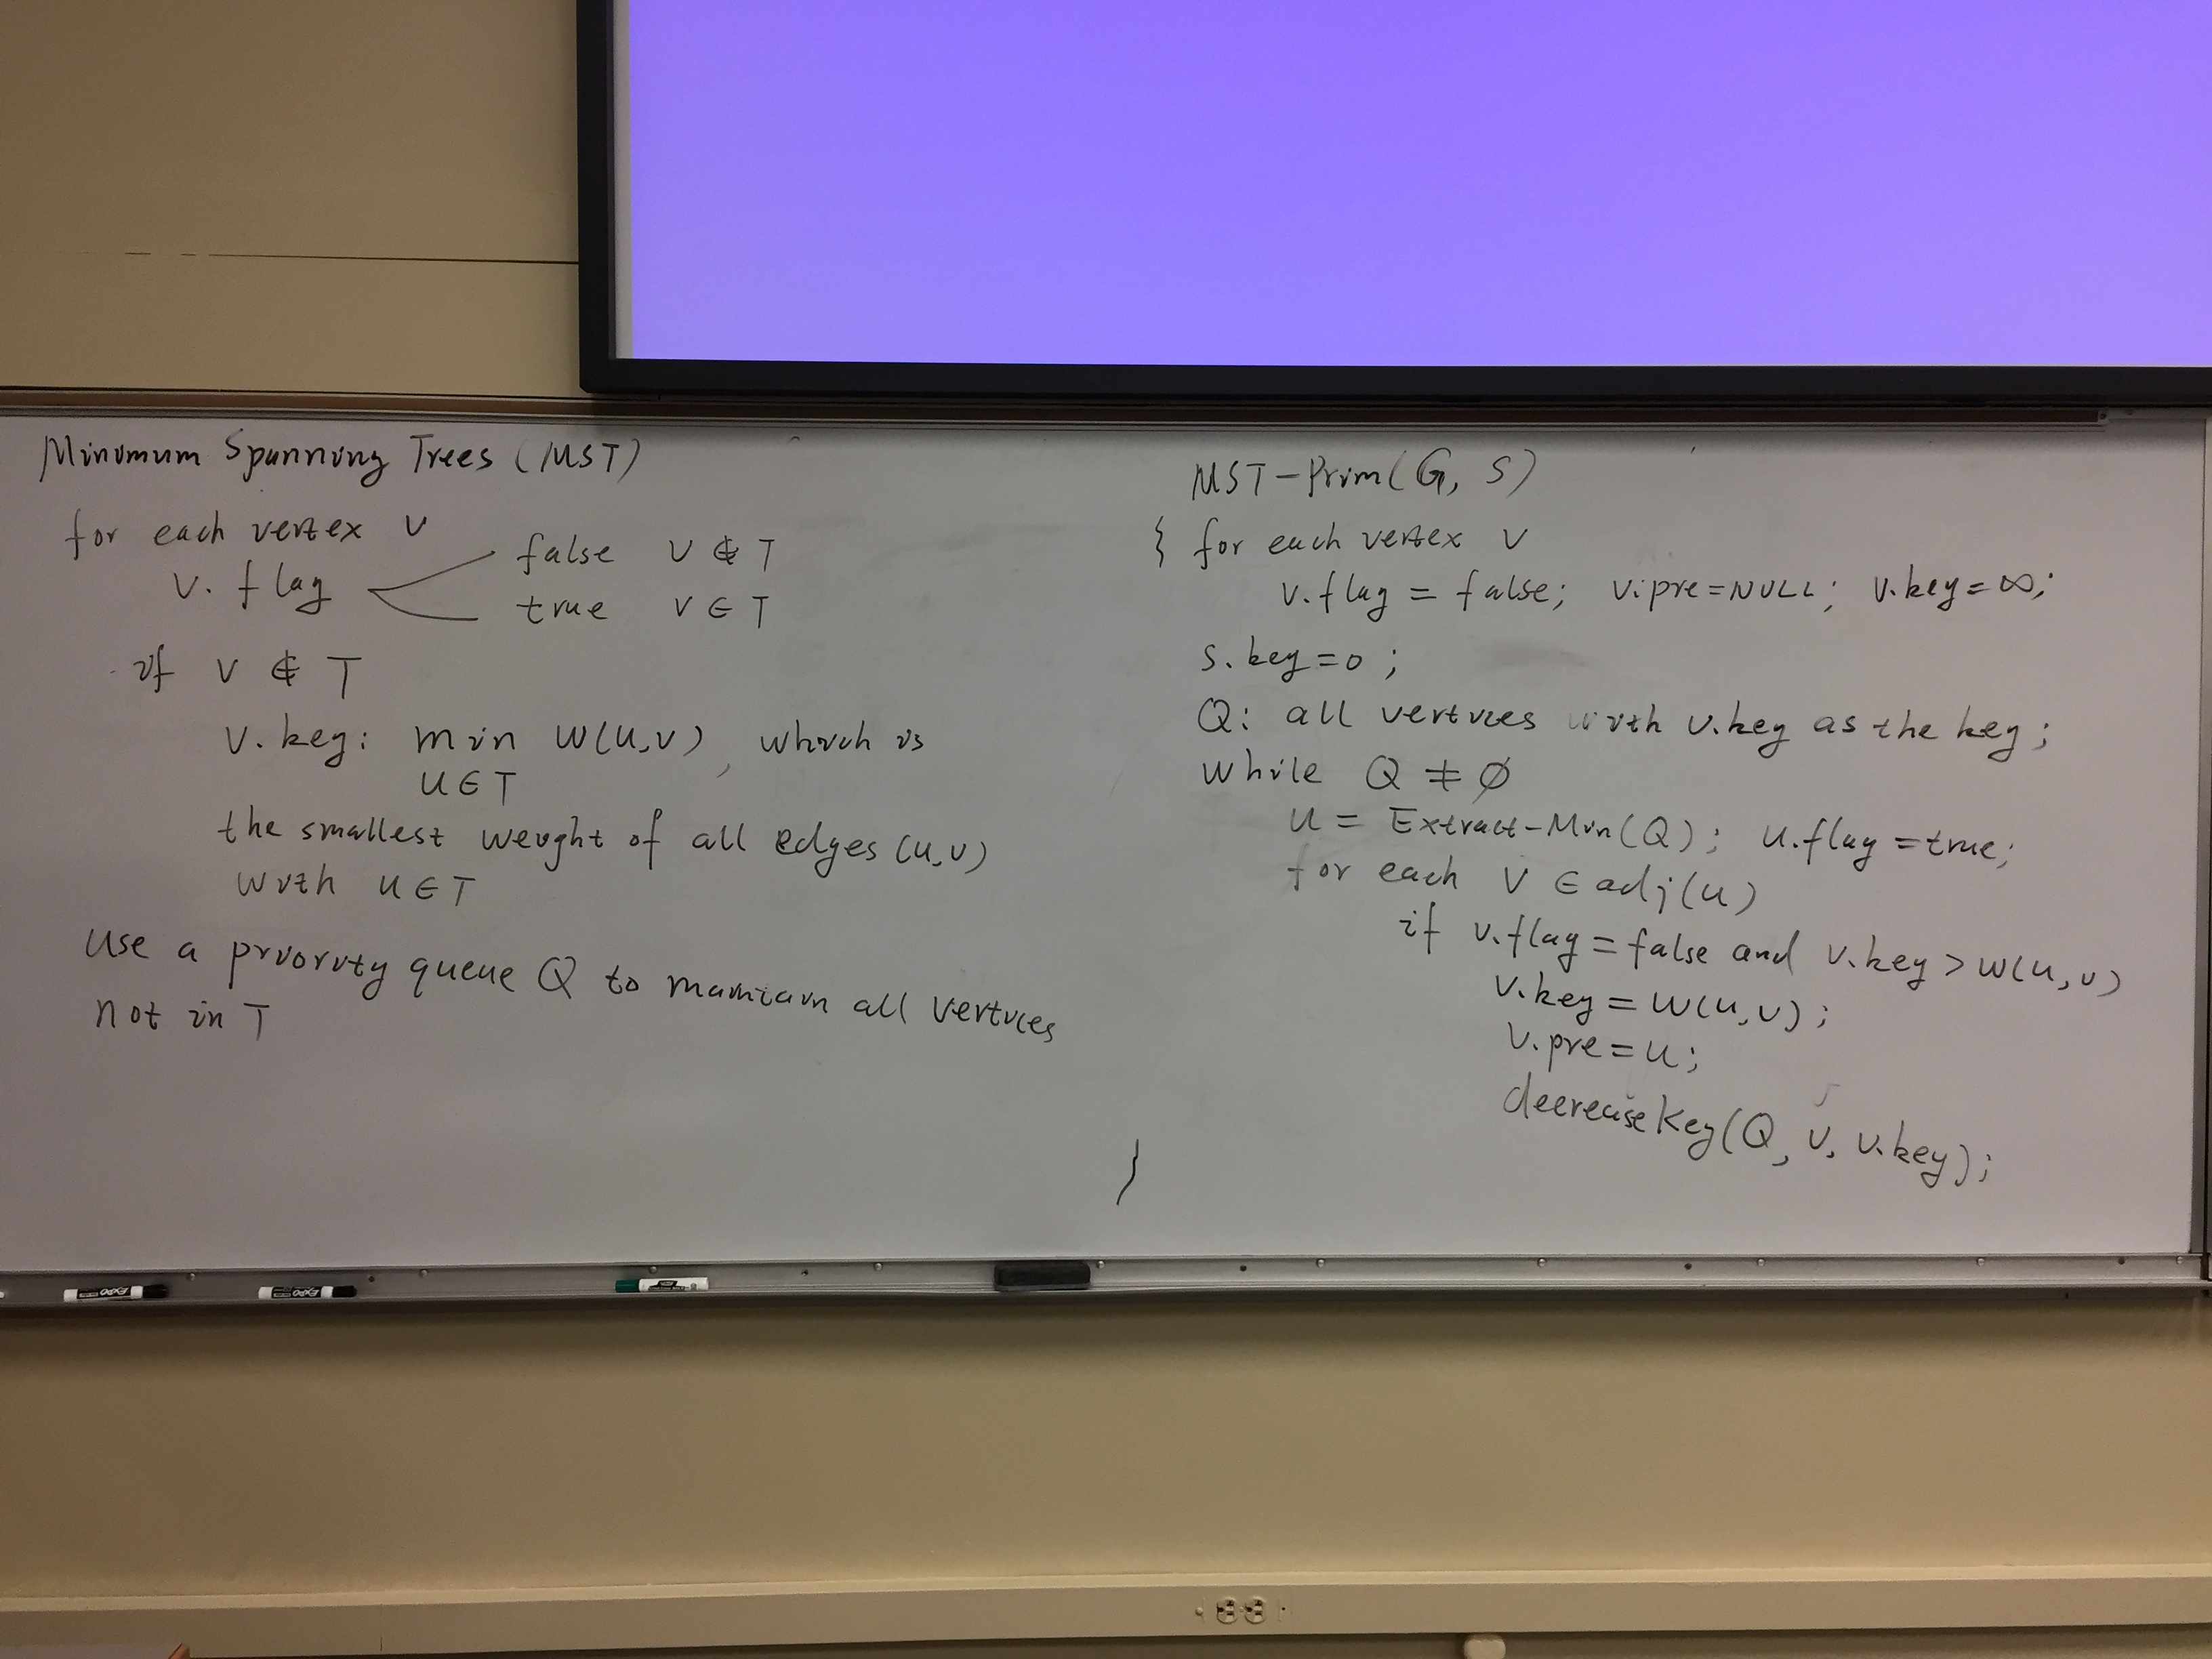 Minimum Spanning Trees (MST)
for each vertex v
v. flag
false v ∉ T
true v ∈ T
if v ∉ T
v. key: min w(u,v), which is
u ∈ T
the smallest weight of all edges (u,v)
with u ∈ T
Use a priority queue Q to maintain all vertices
not in T
MST-Prim(G, S)
{ for each vertex v
v.flag = false; v.pre=NULL; v.key=∞;
s.key=0;
Q: all vertices with v.key as the key;
while Q ≠ ∅
u = Extract-Min(Q); u.flag=true;
for each v ∈ adj(u)
if v.flag=false and v.key>w(u,v)
v.key=w(u,v);
v.pre=u;
decreaseKey(Q, v, v.key);
}
EXPO
EXPO